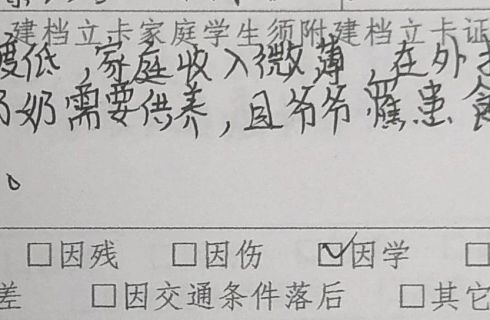 建档立卡家庭学生须附建档立卡证
低，家庭收入微薄，在外
奶需要供养，且爷爷罹患
。
□因残 □因伤 ☑因学 □
差 □因交通条件落后 □其它